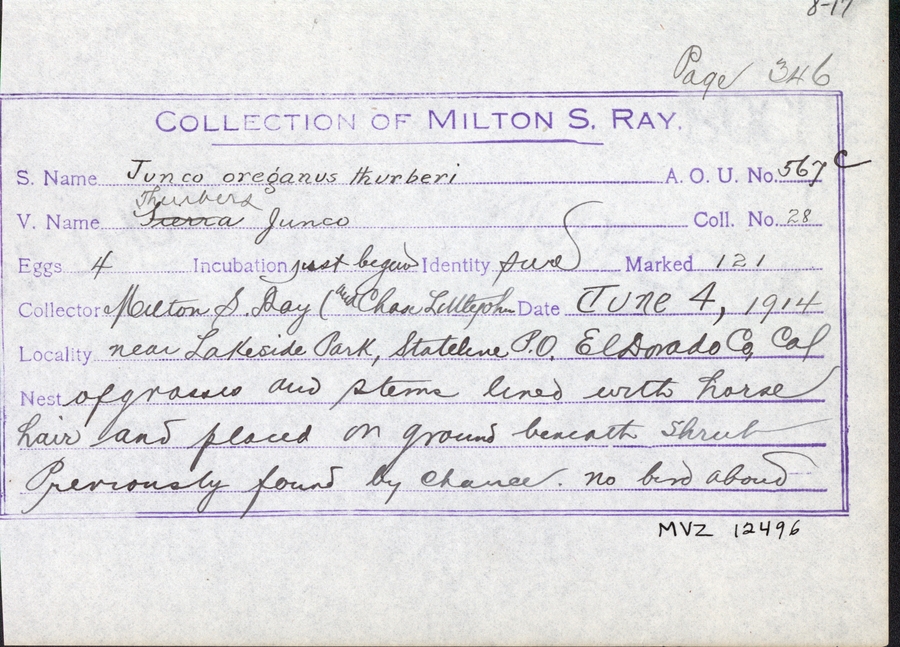 8-17
Page 346
COLLECTION OF MILTON S. RAY.
S. Name Junco oreganus thurberi A. O. U. No. 567 c
Thurbers
V. Name Sierra Junco Coll. No. 28
Eggs 4 Incubation just begun Identity sure Marked 121
Collector Milton S. Ray (and Chas Littlejohn Date June 4, 1914
Locality near Lakeside Park, Stateline P.O. El Dorado Co, Cal
Nest of grasses and stems lined with horse
hair and placed on ground beneath shrub
Previously found by chance. no bird about
MVZ 12496